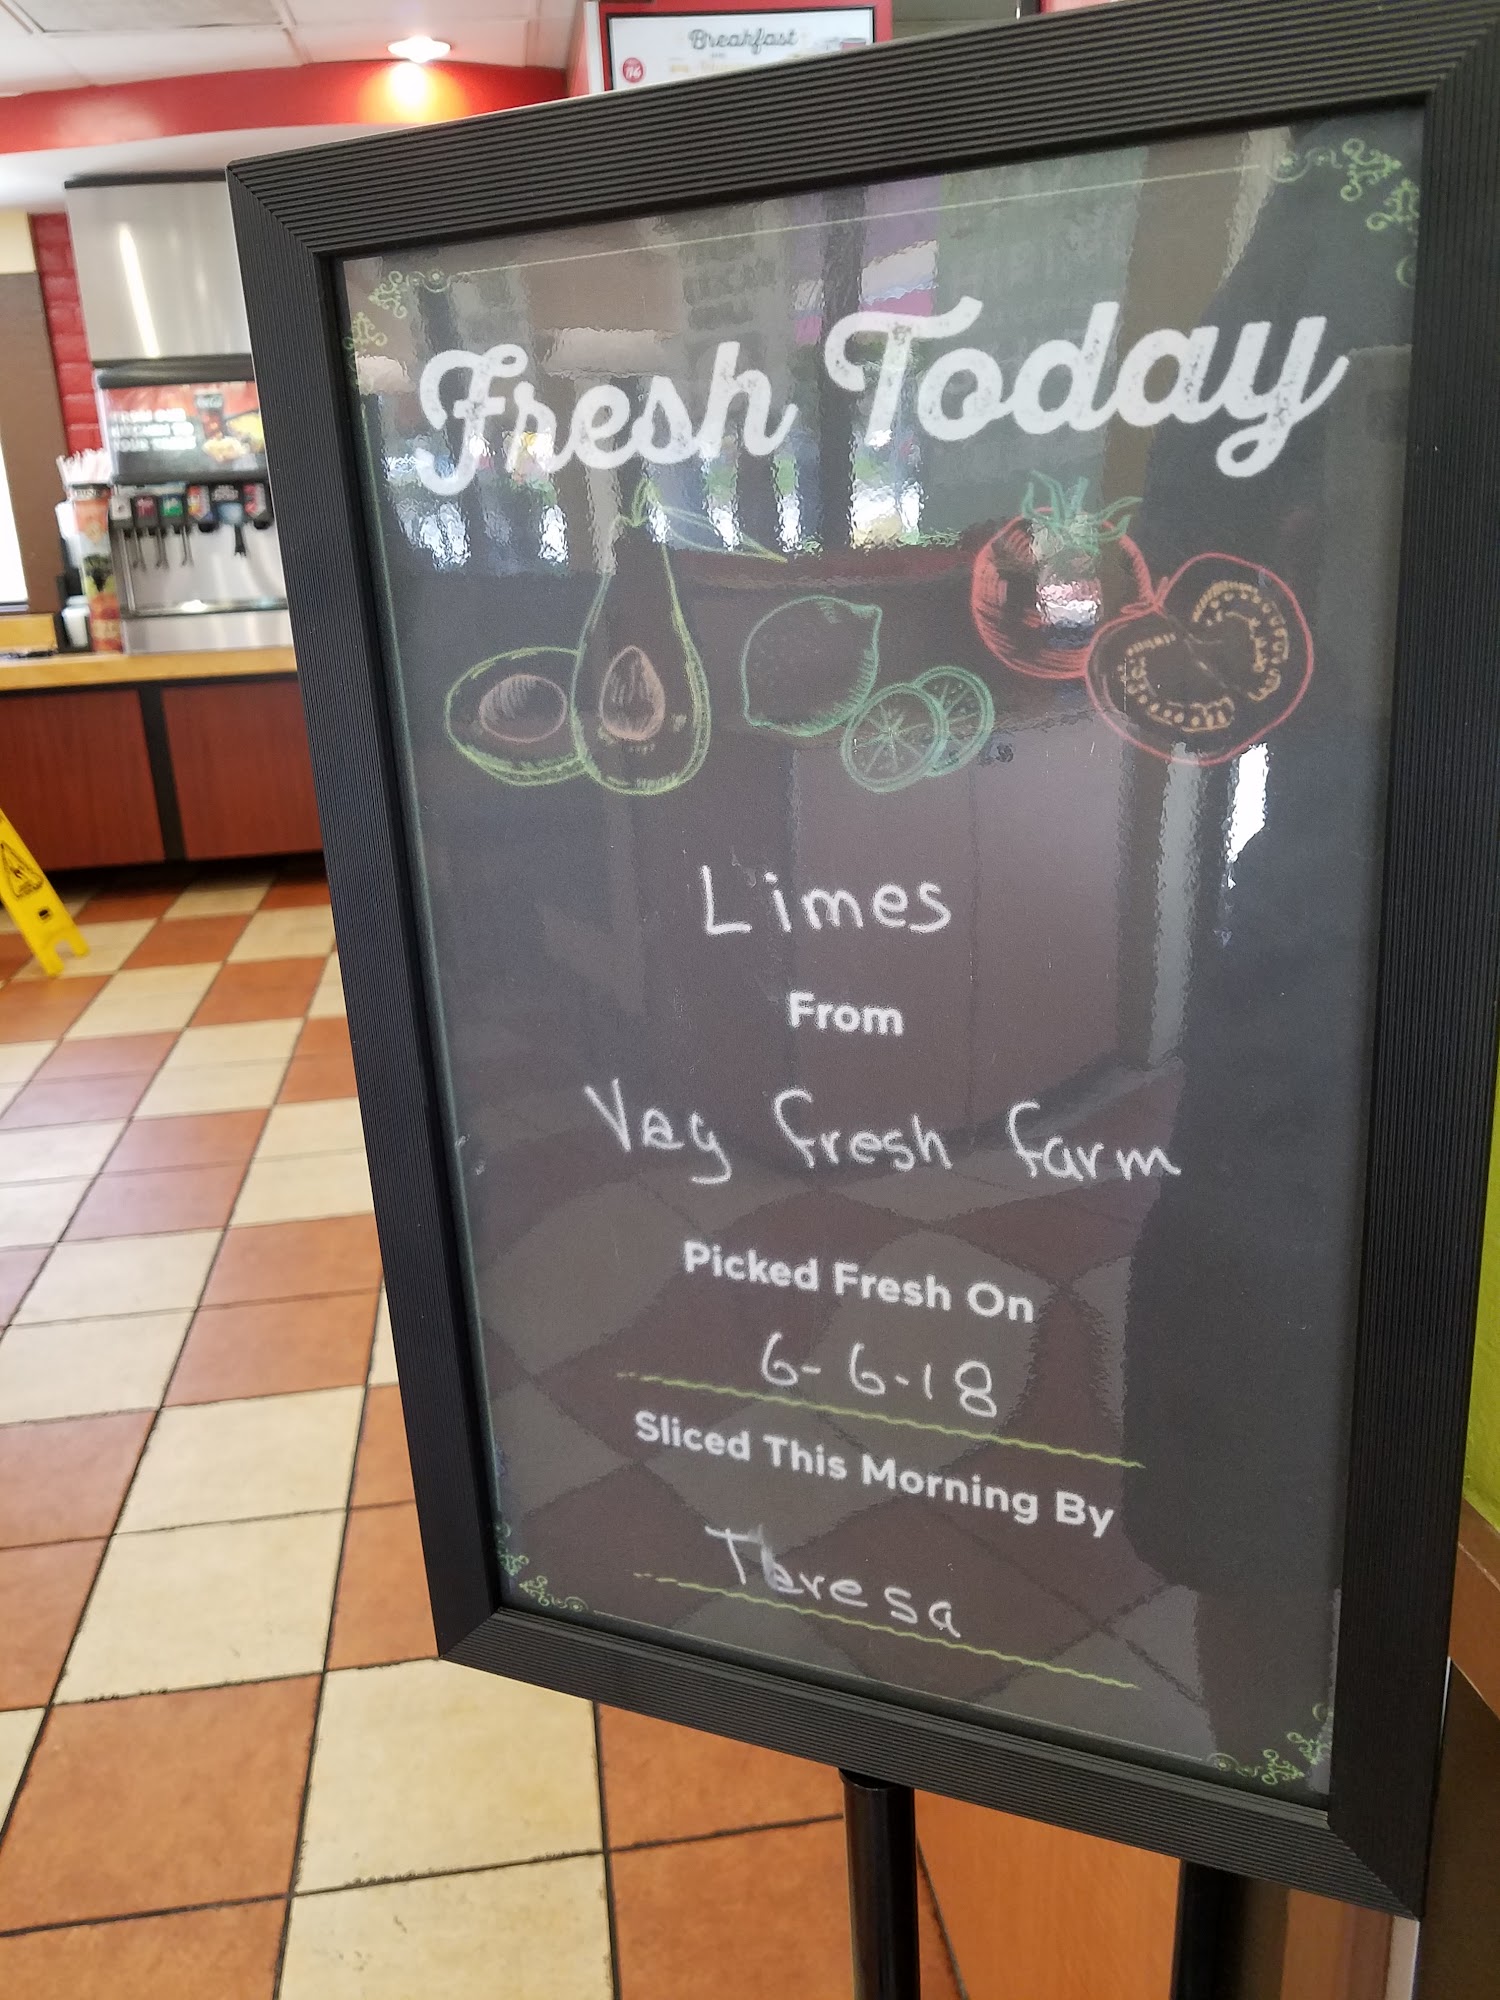 Breakfast
Fresh Today
Limes
From
Veg fresh farm
Picked Fresh On
6-6-18
Sliced This Morning By
Teresa